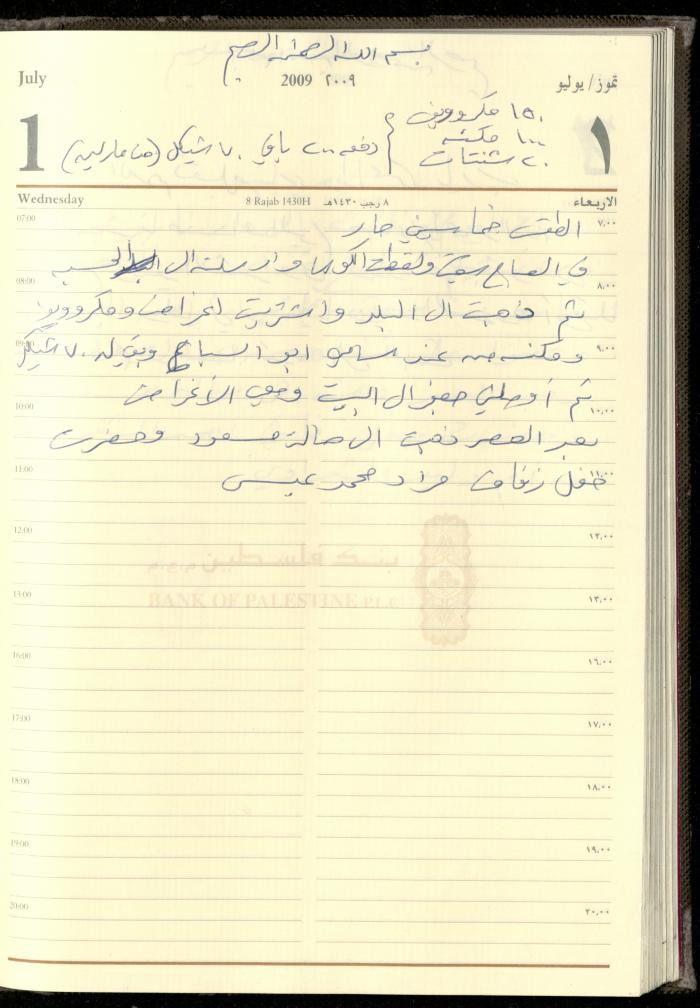 بسم الله الرحمن الرحيم
July
2009 ٢٠٠٩
تموز/ يوليو
1
١
١٥٠ مكروويف
١٠٠ مكنسه
٢٠ شنتات
دفعه ٢٠٠ باقي ٧٠ شيكل
Wednesday
8 Rajab 1430H ٨ رجب ١٤٣٠هـ
الاربعاء
07:00 ٧,٠٠
الطقس خماسيني حار
في الصباح سقيت ولقطت الكوسا وارسلته الى الحسبه
08:00 ٨,٠٠
ثم ذهبت الى البلد واشتريت اغراض ومكروويف
09:00 ٩,٠٠
ومكنسه من عند سامي ابو السباع وبقي له ٧٠ شيكل
ثم أوصلني الى البيت ومعي الأغراض
10:00 ١٠,٠٠
بعد العصر ذهبت الى صالة مسعود وحضرت
11:00 ١١,٠٠
حفل زفاف مراد محمد عيسى
12:00 ١٢,٠٠
بنك فلسطين م.ع.م
BANK OF PALESTINE P.L.C
13:00 ١٣,٠٠
16:00 ١٦,٠٠
17:00 ١٧,٠٠
18:00 ١٨,٠٠
19:00 ١٩,٠٠
20:00 ٢٠,٠٠